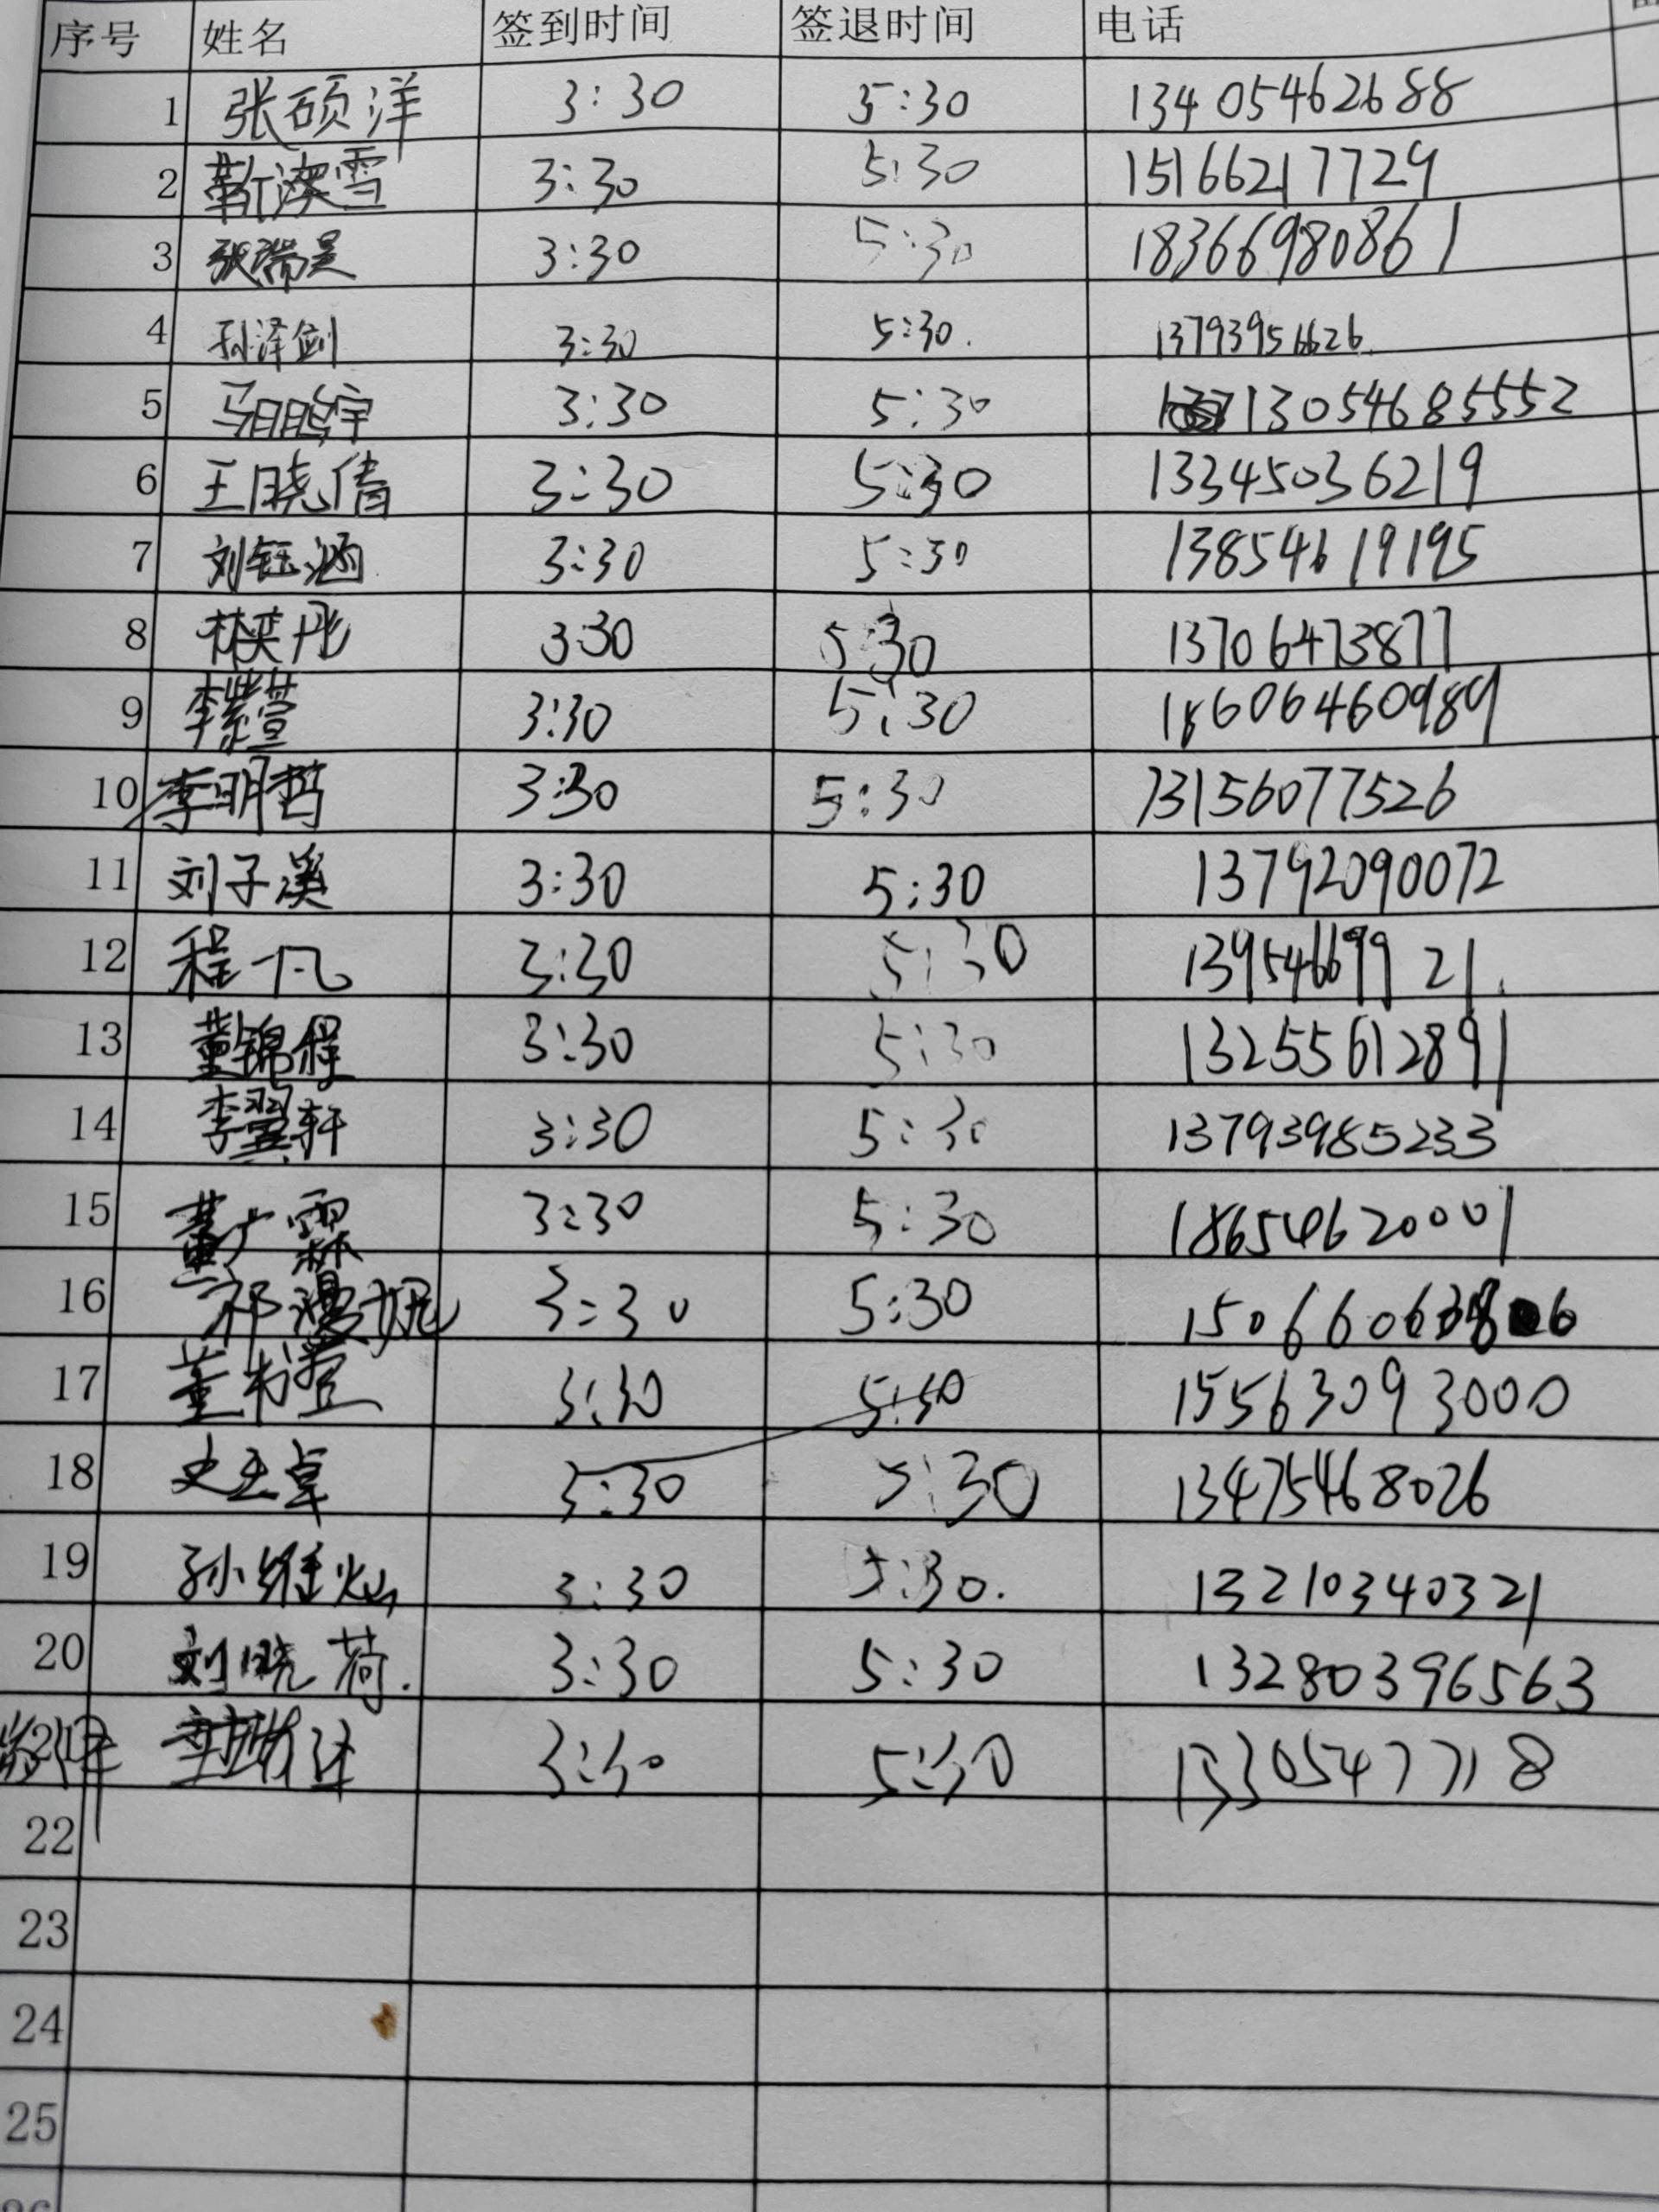 序号 姓名 签到时间 签退时间 电话
1 张硕洋 3:30 5:30 13405462688
2 靳淏雪 3:30 5:30 15166217729
3 张瑞昊 3:30 5:30 18366980861
4 孙泽剑 3:30 5:30. 13793956626.
5 马鹏宇 3:30 5:30 13054685552
6 王晓倩 3:30 5:30 13345036219
7 刘钰涵 3:30 5:30 13854619195
8 林英彤 3:30 5:30 13706473877
9 李紫萱 3:30 5:30 18606460989
10 李明哲 3:30 5:30 13156077526
11 刘子溪 3:30 5:30 13792090072
12 程一凡 3:30 5:30 13954669921.
13 董锦程 3:30 5:30 13255612891
14 李翼轩 3:30 5:30 13793985233
15 董广霖 3:30 5:30 18654620001
16 祁漫妮 3:30 5:30
17 董书萱 3:30 5:30 15563093000
18 史玉卓 3:30 5:30 13475468026
19 孙维灿 3:30 5:30. 13210340321
20 刘晓荷. 3:30 5:30 13280396563
3:30 5:30 13305477718
22
23
24
25